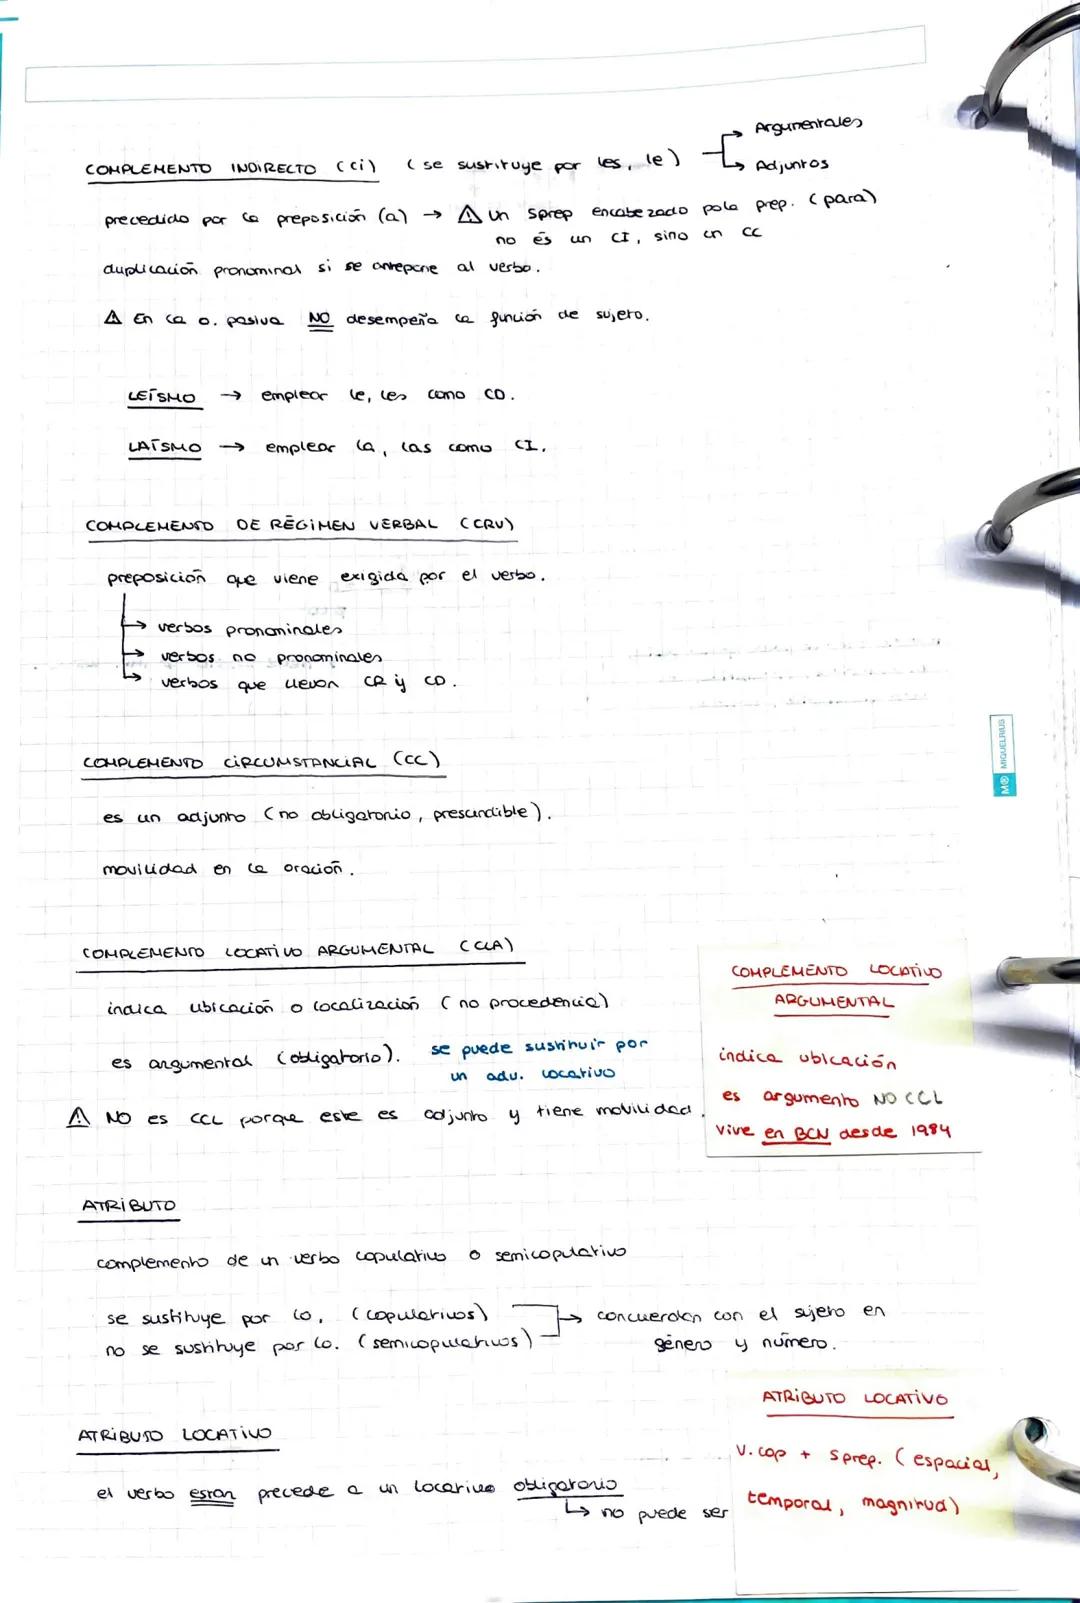 COMPLEMENTO INDIRECTO (Ci) (se sustituye por les, le)
Argumentales
Adjuntos
precedido por la preposición (a) → ⚠ Un Sprep encabezado pola prep. (para)
no és un CI, sino un CC
duplicación pronominal si se antepone al verbo.
⚠ En la o. pasiva NO desempeña la función de sujeto.
LEÍSMO → emplear le, les como CD.
LAÍSMO → emplear la, las como CI.
COMPLEMENTO DE RÉGIMEN VERBAL (CRV)
preposición que viene exigida por el verbo.
→ verbos pronominales
→ verbos no pronominales
→ verbos que llevan CR y CD.
COMPLEMENTO CIRCUMSTANCIAL (CC)
es un adjunto (no obligatorio, prescindible).
movilidad en la oración.
COMPLEMENTO LOCATIVO ARGUMENTAL (CLA)
indica ubicación o localización (no procedencia)
es argumental (obligatorio). se puede sustituir por
un adv. locativo
⚠ NO es CCL porque este es adjunto y tiene movilidad.
COMPLEMENTO LOCATIVO
ARGUMENTAL
indica ubicación
es argumento NO CCL
vive en BCN desde 1984
ATRIBUTO
complemento de un verbo copulativo o semicopulativo
se sustituye por lo, (copulativos)
no se sustituye por lo. (semicopulativos)
→ concuerdan con el sujeto en
género y número.
ATRIBUTO LOCATIVO
el verbo estar precede a un locativo obligatorio
↳ no puede ser
ATRIBUTO LOCATIVO
V. cop + Sprep. (espacial,
temporal, magnitud)
M® MIQUELRIUS